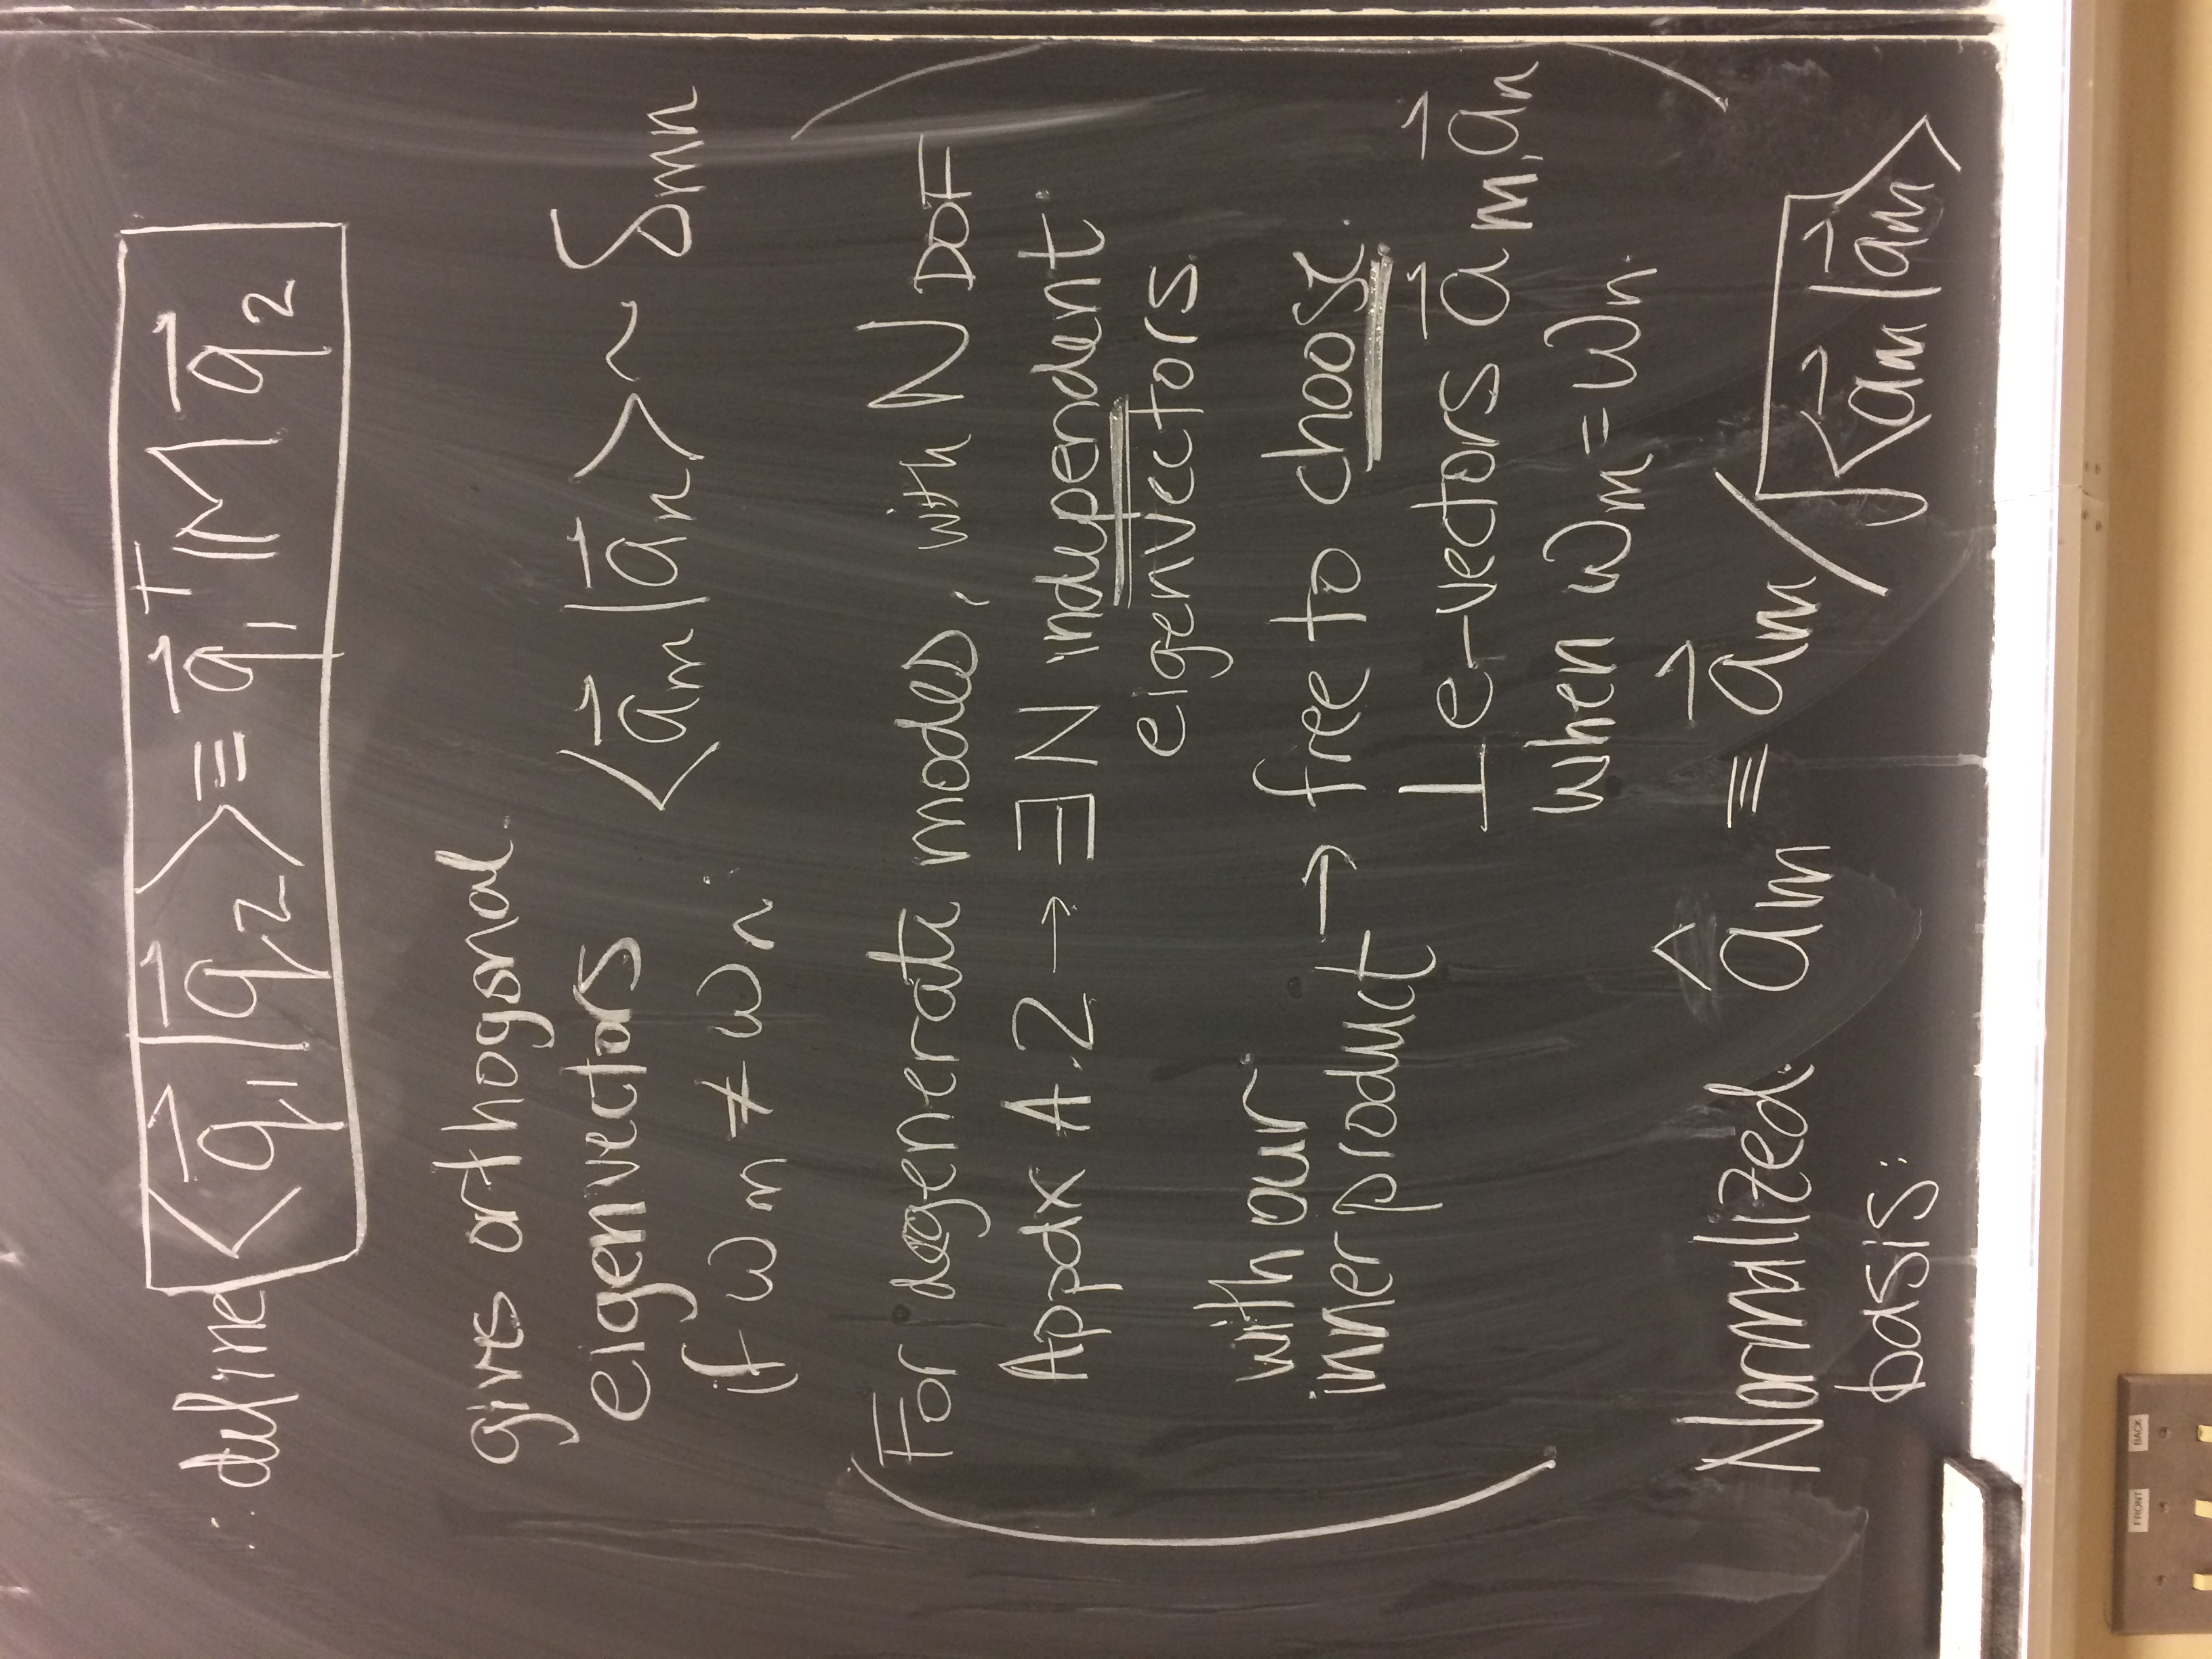 ∴ define ⟨q⃗₁|q⃗₂⟩ ≡ q⃗₁ᵀ M q⃗₂
gives orthogonal
eigenvectors ⟨a⃗m|a⃗n⟩ ~ δmn
if ωm ≠ ωn
(For degenerate modes, with N DOF
Appdx A.2 → ∃ N independent
eigenvectors.
with our
inner product → free to choose
⊥ e-vectors a⃗m, a⃗n
when ωm = ωn.)
Normalized âm ≡ a⃗m/√⟨a⃗m|a⃗m⟩
basis:
FRONT
BACK